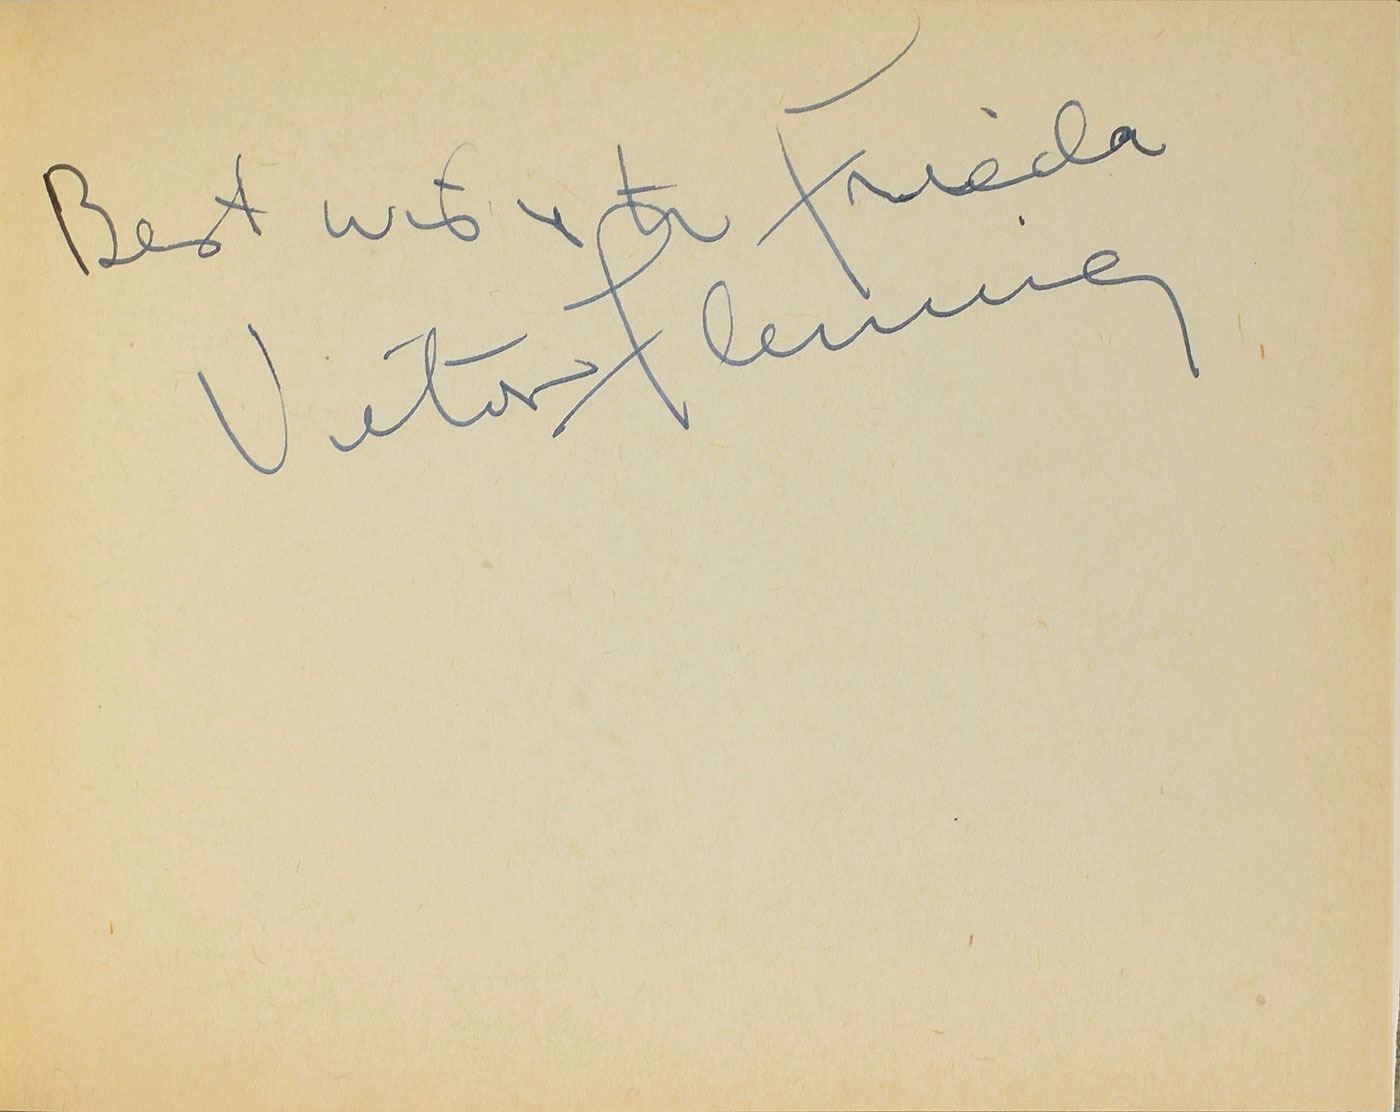 Best wishes to Frieda
Victor Fleming